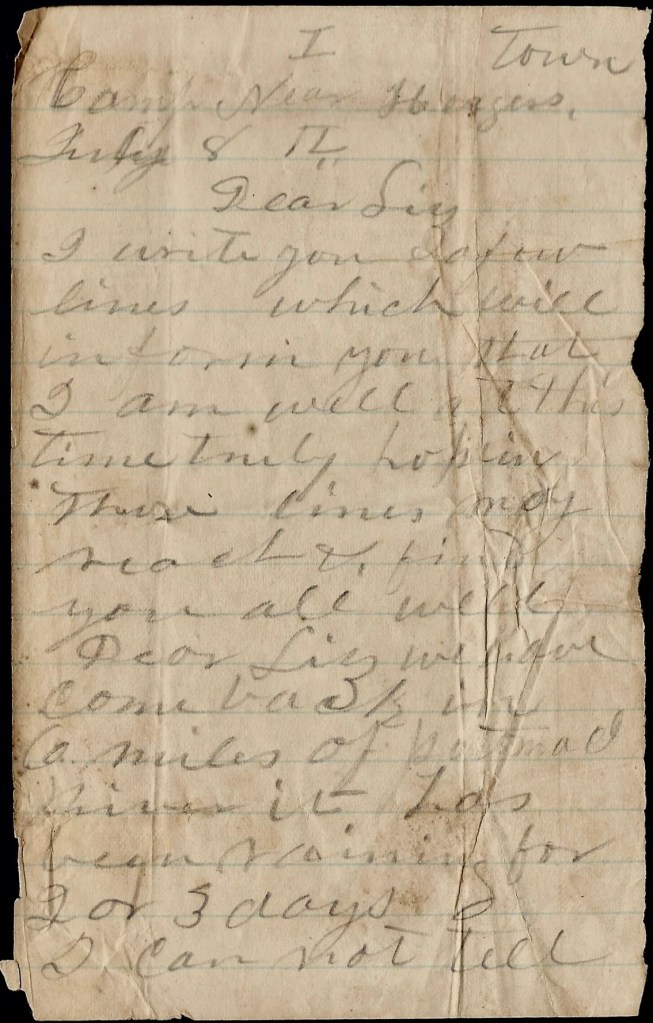 I Town
Camp Near Hergers,
July 8 th
Dear Liz
I write you a few
lines which will
inform you that
I am well at this
time truly hopin
these lines may
reach & find
you all well
Dear Liz we have
come back in
6 miles of
River it has
been raining for
2 or 3 days
I can not tell